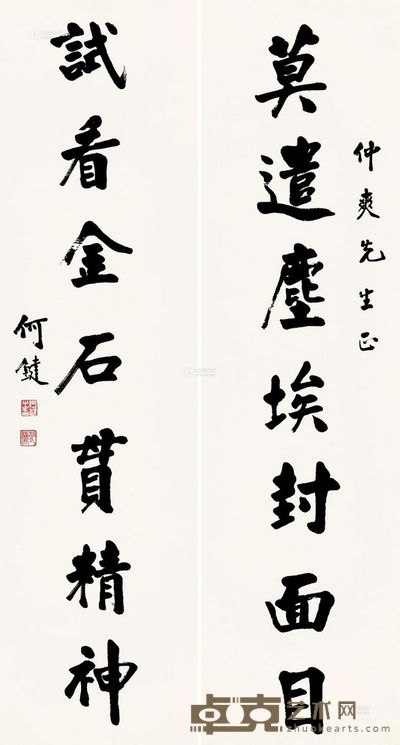 仲爽先生正
莫遣塵埃封面目
試看金石貫精神
何鍵
卓克艺术网
zhuokearts.com